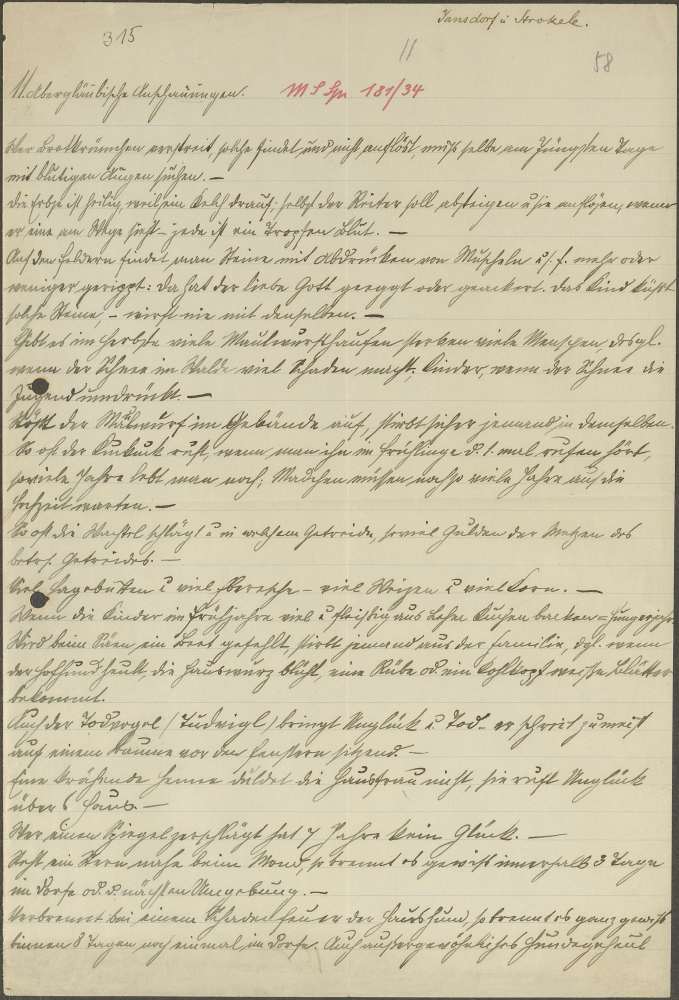 Jansdorf u. Strokele.
315
11
58
11. Abergläubische Anschauungen. MS Spr 181/34
Wer Brotkrümchen verstreut, solche findet und nicht aufliest, muß selbe am Jüngsten Tage
mit blutigen Augen suchen. —
Die Erbse ist heilig, weil ein Kelch drauf; selbst der Reiter soll absteigen u. sie auflösen, wenn
er eine am Wege sieht – jede ist ein Tropfen Blut. —
Auf den Feldern findet man Steine mit Abdrücken von Muscheln u. s. f. mehr oder
weniger gerippt: Da hat der liebe Gott geeggt oder geackert. Das Kind küßt
solche Steine, – wirft nie mit denselben. —
Gibt es im Herbste viele Maulwurfshaufen sterben viele Menschen, desgl.
wenn der Schnee im Walde viel Schaden macht, Kinder, wenn der Schnee die
Jugend umdrückt. —
Stößt der Maulwurf im Gebäude auf, stirbt sicher jemand in demselben.
So oft der Kuckuck ruft, wenn man ihn im Frühlinge d. 1. mal rufen hört,
soviele Jahre lebt man noch; Mädchen müssen noch so viele Jahre auf die
Hochzeit warten. —
So oft die Wachtel schlägt u. in welchem Getreide, soviel Gulden der Metzen des
betr. Getreides. —
Viel Hagebutten u. viel Eberesche – viel Weizen u. viel Korn. —
Wenn die Kinder im Frühjahre viel u. fleißig aus Lehm Kuchen backen = Hungerjahr.
Wird beim Säen ein Beet gefehlt, stirbt jemand aus der Familie, dgl. wenn
der Hofhund heult, die Hauswurz blüht, eine Rübe od. ein Kohlkopf weiße Blätter
bekommt.
Auch der Todvogel (Tudvigl) bringt Unglück u. Tod – er schreit zumeist
auf einem Baume vor den Fenstern sitzend. —
Eine krähende Henne duldet die Hausfrau nicht, sie ruft Unglück
übers Haus. —
Wer einen Spiegel zerschlägt hat 7 Jahre kein Glück. —
Steht ein Stern nahe beim Mond, so brennt es gewiß innerhalb 3 Tage
im Dorfe od. d. nächsten Umgebung. —
Verbrennt bei einem Schadenfeuer der Haushund, so brennt es ganz gewiß
binnen 8 Tagen noch einmal im Dorfe. Auch außergewöhnliches Hundegeheul